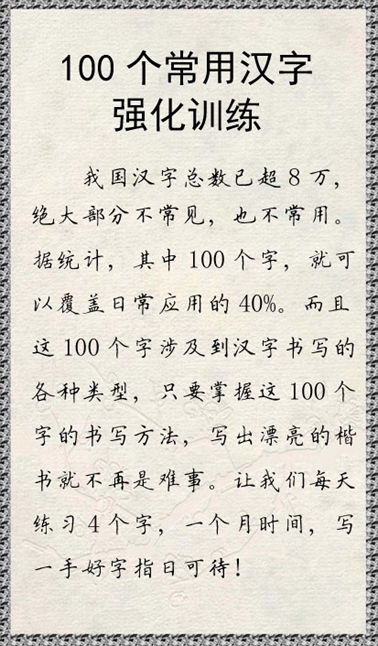 100个常用汉字
强化训练
我国汉字总数已超8万，
绝大部分不常见，也不常用。
据统计，其中100个字，就可
以覆盖日常应用的40%。而且
这100个字涉及到汉字书写的
各种类型，只要掌握这100个
字的书写方法，写出漂亮的楷
书就不再是难事。让我们每天
练习4个字，一个月时间，写
一手好字指日可待！